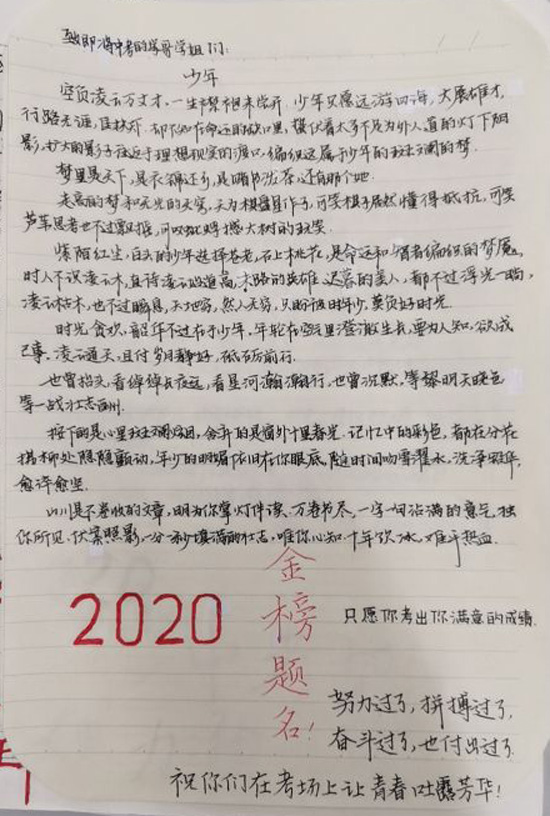 致即将中考的学哥学姐们:
少年
空负凌云万丈才,一生襟袍未曾开.少年只愿远游四海,大展雄才,
行路无涯,但却不知在命运的破口里,蛰伏着太多不足为外人道的灯下烟
影,扩大的影子往返于理想现实的渡口,编织这属于少年的斑斓的梦.
梦里是天下,是衣锦还乡,是赌书泼茶,还有那个她.
走高的梦和无光的天穹,天为棋盘星作子,可笑棋子居然懂得抵抗,可笑
芦苇思考也不过飘摇,可以蚍蜉撼大树的玩笑.
紫陌红尘,白衣的少年选择苍老.石上桃花,是命运和智者编织的梦魇,
时人不识凌云木,直待凌云始道高,末路的英雄,迟暮的美人,都不过浮光一晌,
凌云枯木,也不过瞬息,天地穷,然人无穷,只盼彼时年少,莫负好时光.
时光贪欢,韶华不过在于少年,年轮在空气里澄澈生长,要为人知,欲成
己事.凌云通天,且付岁月静好,砥砺前行.
也曾抬头,看倬倬长夜远,看星河瀚瀚行,也曾沉默,等黎明天晓色
等一战壮志酬.
按下的是心里斑斓,舍弃的是窗外十里春光.记忆中的彩色,都在分花
拂柳处隐隐颤动,年少的明媚依旧在你眼底,随时间吻雪濯水,洗净铅华,
愈淬愈坚.
山川是不卷收的文章,明为你掌灯伴读,万卷书尽,一字一句沾满的意气,独
你所见.伏案照影,一分一秒填满的壮志,唯你心知.十年饮冰,难平热血.
2020
金榜题名!
只愿你考出你满意的成绩.
努力过了,拼搏过了,
奋斗过了,也付出过了.
祝你们在考场上让青春吐露芳华!